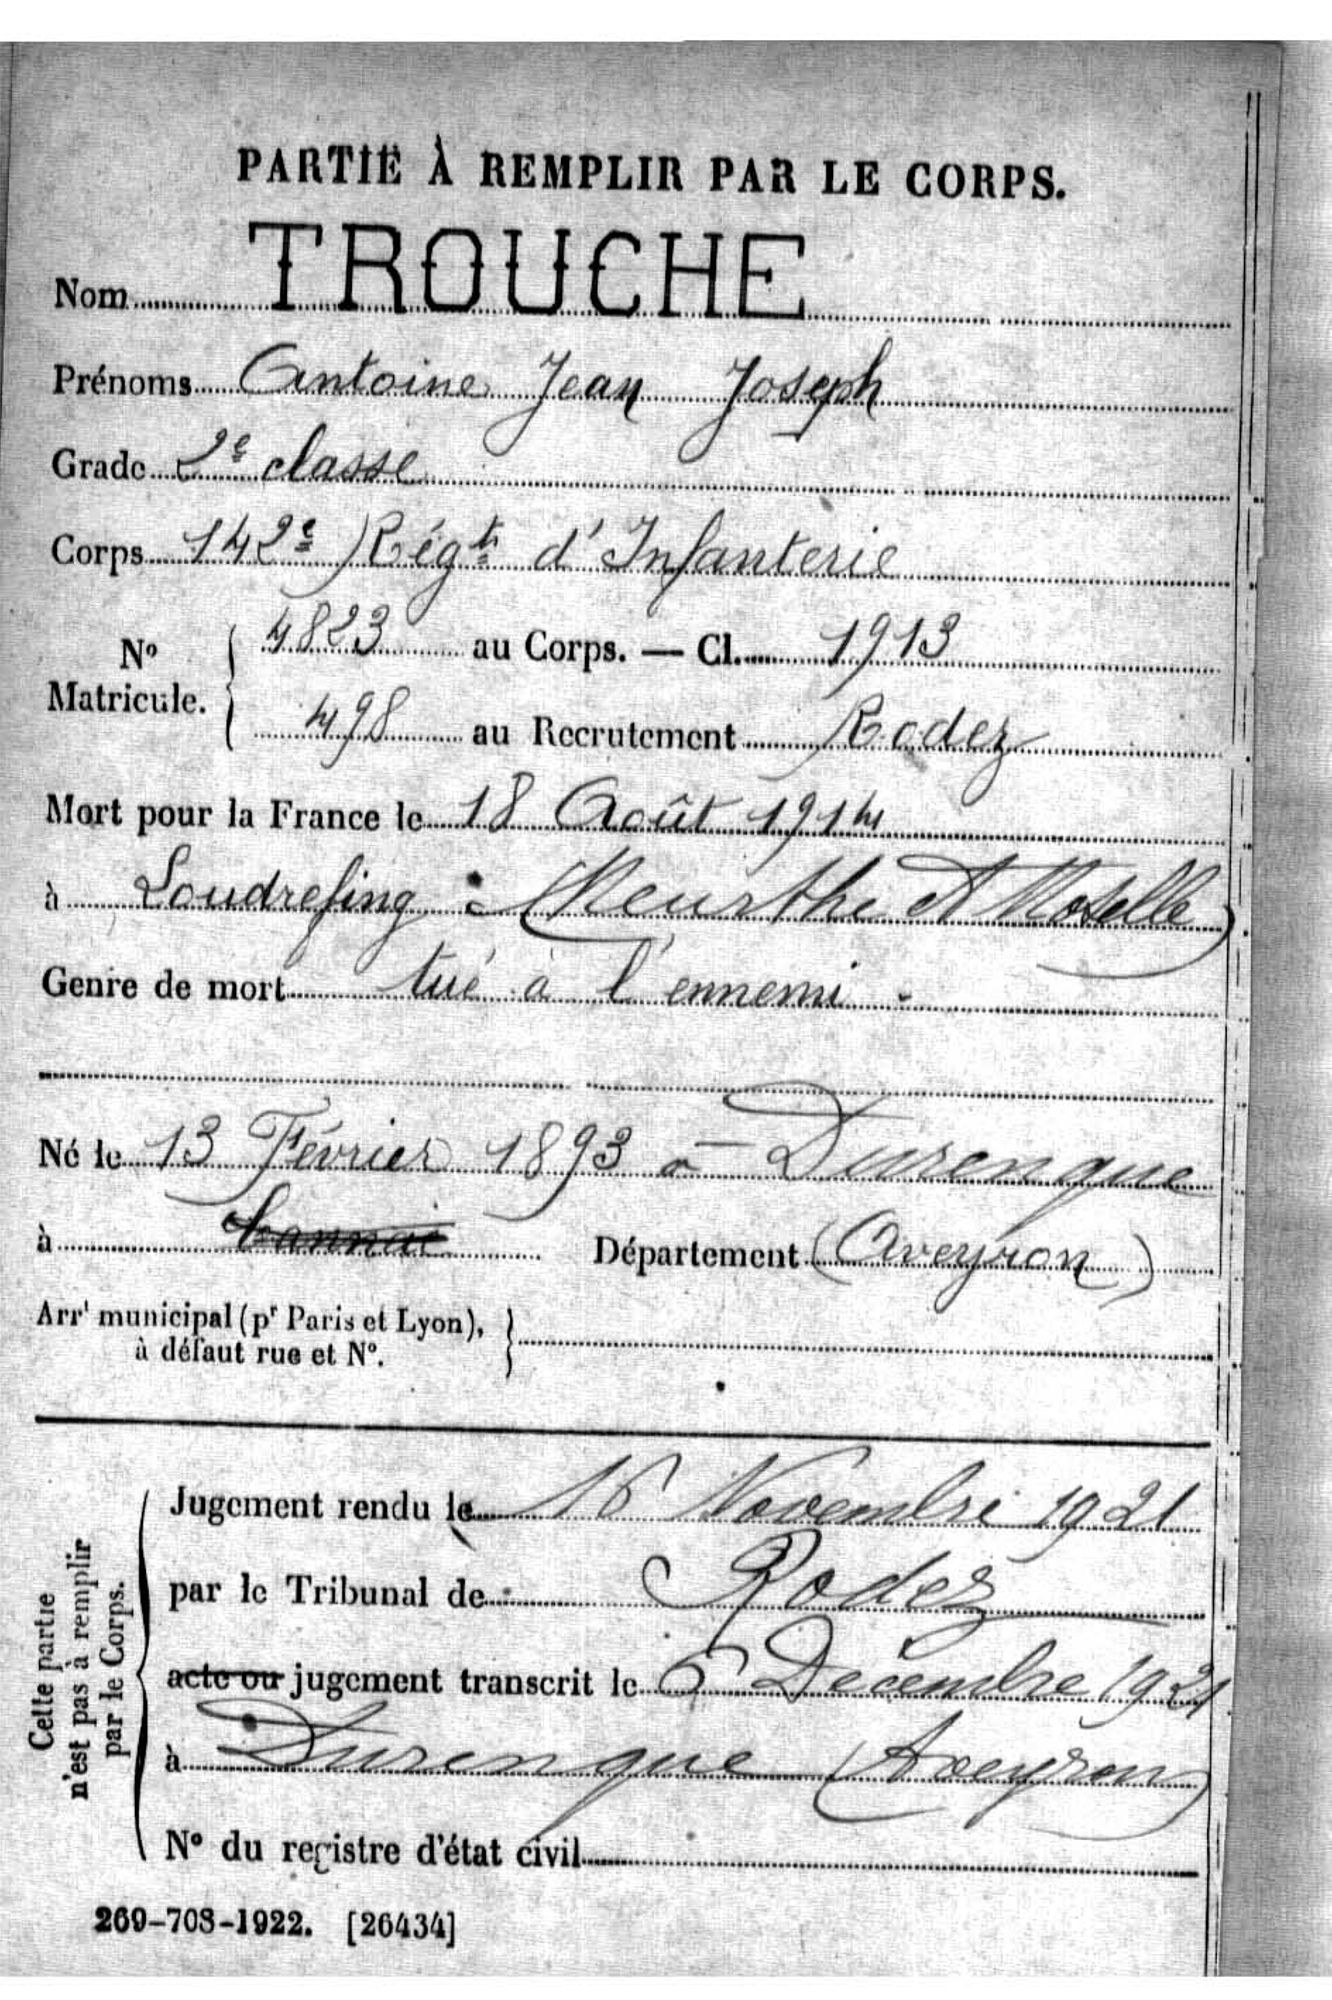 PARTIE À REMPLIR PAR LE CORPS.
Nom TROUCHE
Prénoms Antoine Jean Joseph
Grade 2e classe
Corps 142e Régt d'Infanterie
No Matricule. { 4823 au Corps. — Cl. 1913
498 au Recrutement Rodez
Mort pour la France le 18 Août 1914
à Loudrefing (Meurthe et Moselle)
Genre de mort tué à l'ennemi -
Né le 13 Février 1893 à Durenque
à Département (Aveyron)
Arrt municipal (pr Paris et Lyon), }
à défaut rue et No.
Cette partie
n'est pas à remplir
par le Corps.
Jugement rendu le 16 Novembre 1921
par le Tribunal de Rodez
acte ou jugement transcrit le 6 Décembre 1921
à Durenque (Aveyron)
No du registre d'état civil
269-708-1922. [26434]